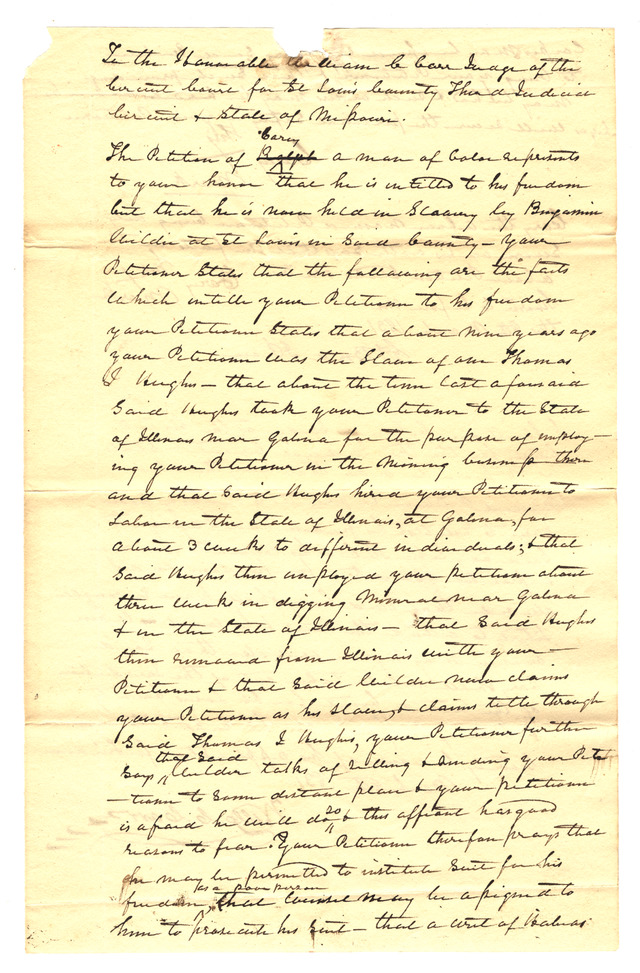 To the Honourable William C Carr Judge of the
Circuit Court for St Louis County Third Judicial
Circuit & State of Missouri.
Carey
The Petition of Ralph a man of Color represents
to your honor that he is intitled to his freedom
but that he is now held in Slavery by Benjamin
at St Louis in Said County – your
Petitioner States that the following are the facts
Which intitle your Petitioner to his freedom
your Petitioner States that about nine years ago
your Petitioner was the Slave of one Thomas
J Hughes – that about the time last aforesaid
Said Hughes took your Petitioner to the State
of Illinois near Galena for the purpose of employ–
ing your Petitioner in the Mining business there
and that Said Hughes hired your Petitioner to
Labor in the State of Illinois, at Galena, for
about 3 weeks to different individuals; & that
Said Hughes then employed your petitioner about
three weeks in digging Mineral near Galena
& in the State of Illinois – that Said Hughes
then removed from Illinois with your –
Petitioner & that Said now claims
your Petitioner as his Slave, & claims title through
Said Thomas J Hughes, your Petitioner further
that Said
Says talks of Selling & Sending your Peti
–tioner to Some distant place & your petitioner
is afraid he will do so & this affiant has good
reasons to fear. Your Petitioner therefore prays that
he may be permitted to institute Suit for his
as a poor person
freedom, that Counsel may be assigned to
him to prosecute his Suit – that a writ of Habeas